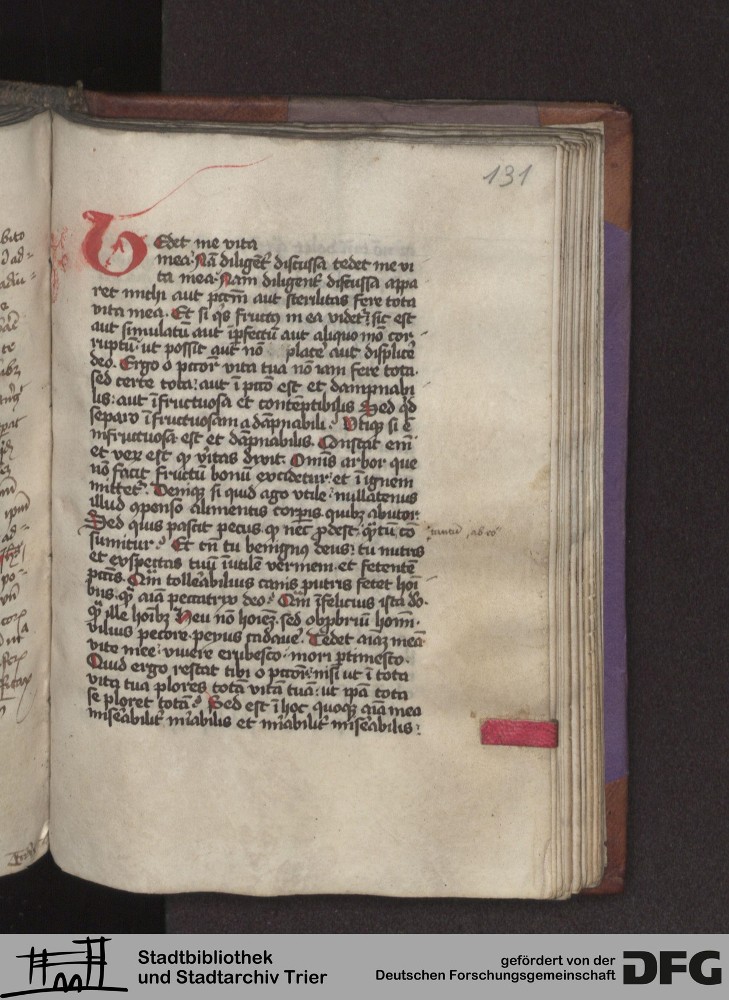 131
Tedet me vita
mea. Nā diligēt̄ discussa tedet me vi
ta mea. Nam diligent̄ discussa appa
ret michi aut pctm̄ aut sterilitas fere tota
vita mea. Et si q̇s fructꝰ in ea videt̄ sic est
aut simulatū aut īpfectū aut aliquo mō cor
ruptū ut possit aut nō place aut displice
deo. Ergo o pctor vita tua nō iam fere tota
sed certe tota aut ī pctō est et dampnabi
lis aut īfructuosa et contēptibilis Sed qd
separo īfructuosam a dāpnabili. Utiqꝫ si ē
infructuosa est et dāpnabilis. Constat em̄
et verū est qꝫ vitas dixit. Omīs arbor que
nō facit fructū bonū excidetur et ī ignem
mittet̄. Deniqꝫ si quid ago utile nullatenus
illud ꝯpenso alimentis corpꝭs quibꝫ abutor
Sed quis pascit pecus qꝫ nec p̄dest qtū cō
sumitur. Et tn̄ tu benignꝰ deus tu nutris
et exspectas tuū īutilē vermem et fetentē
pctīs. Qm̄ tolleabilius canis putris fetet hoī
bus q̄ aīa peccatrix deo. Qm̄ īfelicius ista do
q̄ ille hoībꝫ Heu nō hoīeꝫ sed obpbriū homī
vilius pecore peyus cadaue. Tedet aīaꝫ meā
vite mee vivere erubesco mori ptimesco.
Quid ergo restat tibi o pctor nisi ut ī tota
vita tua plores totā vitā tuā ut ipā tota
se ploret totā. Sed est ī hoc quoqꝫ aīa mea
miseabilit̄ mirabilis et mirabilit̄ miseabilis
Stadtbibliothek
und Stadtarchiv Trier
gefördert von der
Deutschen Forschungsgemeinschaft
DFG